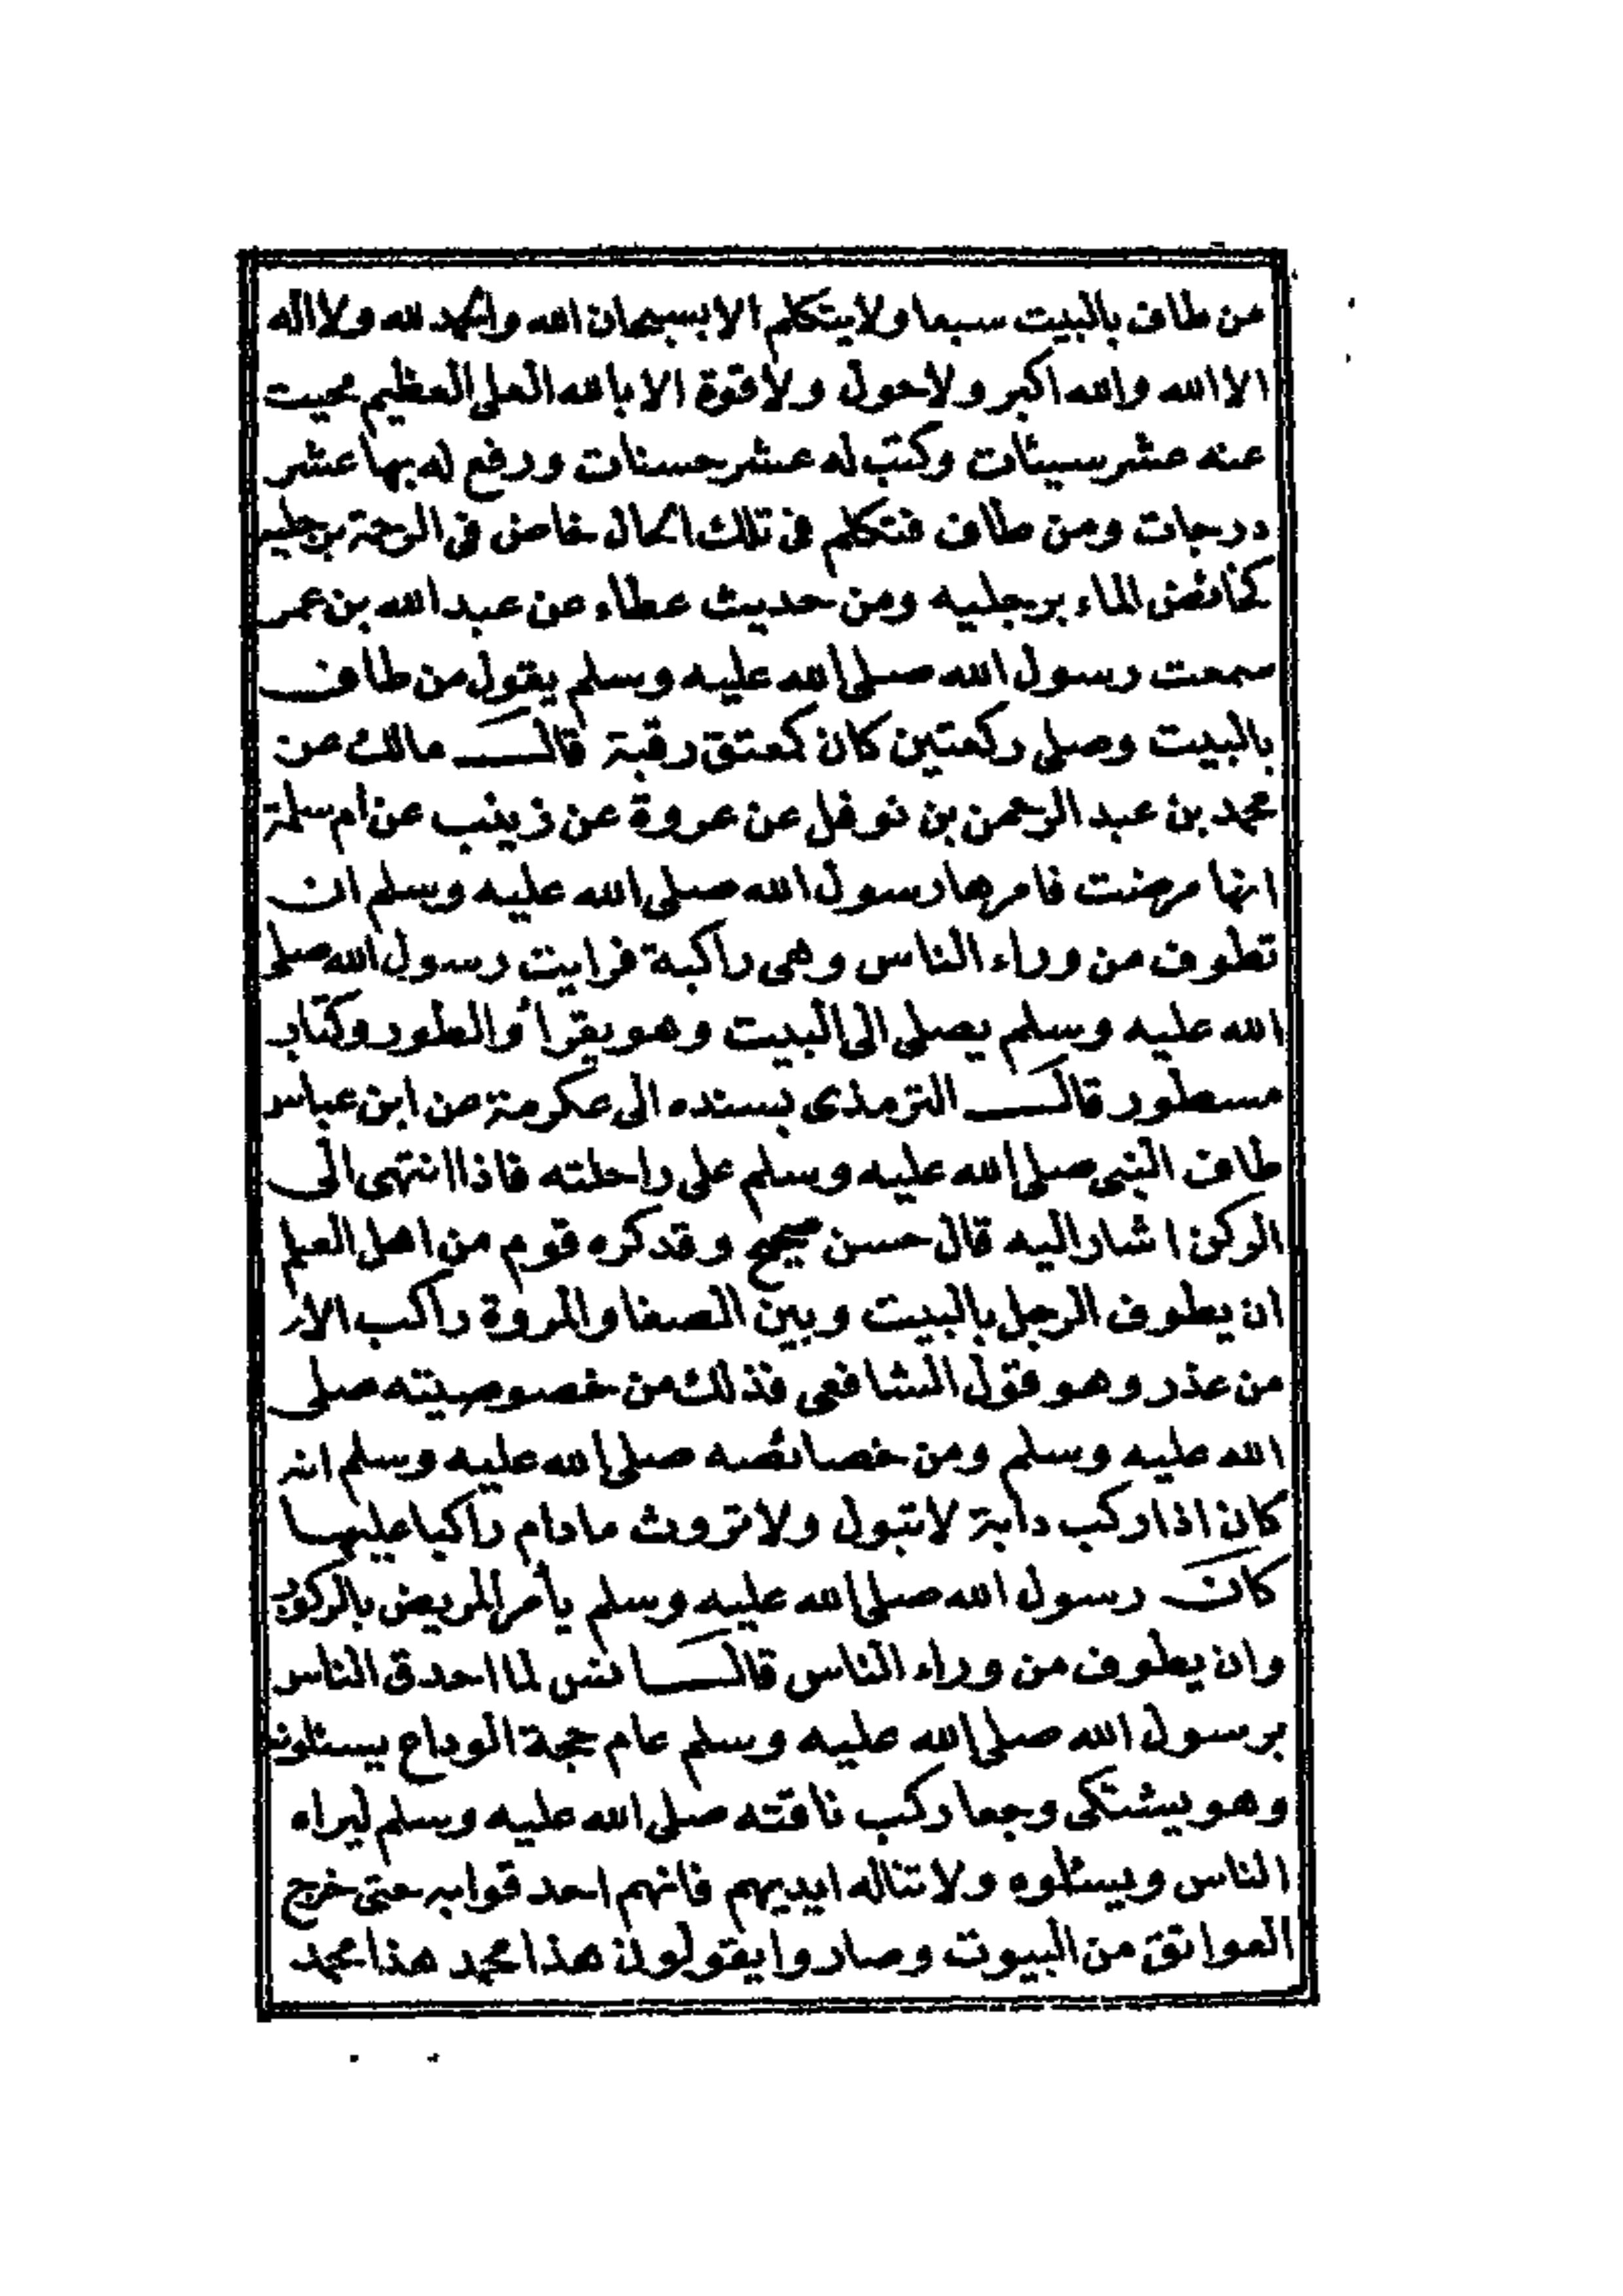 من طاف بالبيت سبعا ولا يتكلم الا بسبحان الله والحمد لله ولا اله
الا الله والله اكبر ولا حول ولا قوة الا بالله العلى العظيم محيت
عنه عشر سيئات وكتب له عشر حسنات ورفع له بها عشر
درجات ومن طاف فتكلم فى تلك الحال خاض فى الرحمة برجليه
كخائض الماء برجليه ومن حديث عطاء عن عبد الله بن عمر
سمعت رسول الله صلى الله عليه وسلم يقول من طاف
بالبيت وصلى ركعتين كان كعتق رقبة قال مالك عن
محمد بن عبد الرحمن بن نوفل عن عروة عن زينب عن ام سلمة
انها مرضت فامرها رسول الله صلى الله عليه وسلم ان
تطوف من وراء الناس وهى راكبة فرايت رسول الله صلى
الله عليه وسلم يصلى الى البيت وهو يقرأ والطور وكتاب
مسطور قال الترمذى بسنده الى عكرمة عن ابن عباس
طاف النبى صلى الله عليه وسلم على راحلته فاذا انتهى الى
الركن اشار اليه قال حسن صحيح وقد كره قوم من اهل العلم
ان يطوف الرجل بالبيت وبين الصفا والمروة راكب الا
من عذر وهو قول الشافعى فذلك من خصوصيته صلى
الله عليه وسلم ومن خصائصه صلى الله عليه وسلم انه
كان اذا ركب دابة لا تبول ولا تروث مادام راكبا عليها
كان رسول الله صلى الله عليه وسلم يأمر المريض بالركوب
وان يطوف من وراء الناس قال انس لما احدق الناس
برسول الله صلى الله عليه وسلم عام حجة الوداع يسئلونه
وهو يشتكى وجعا ركب ناقته صلى الله عليه وسلم ليراه
الناس ويسئلوه ولا تناله ايديهم فانهم احد قوابه حتى خرج
العواتق من البيوت وصاروا يقولون هذا محمد هذا محمد